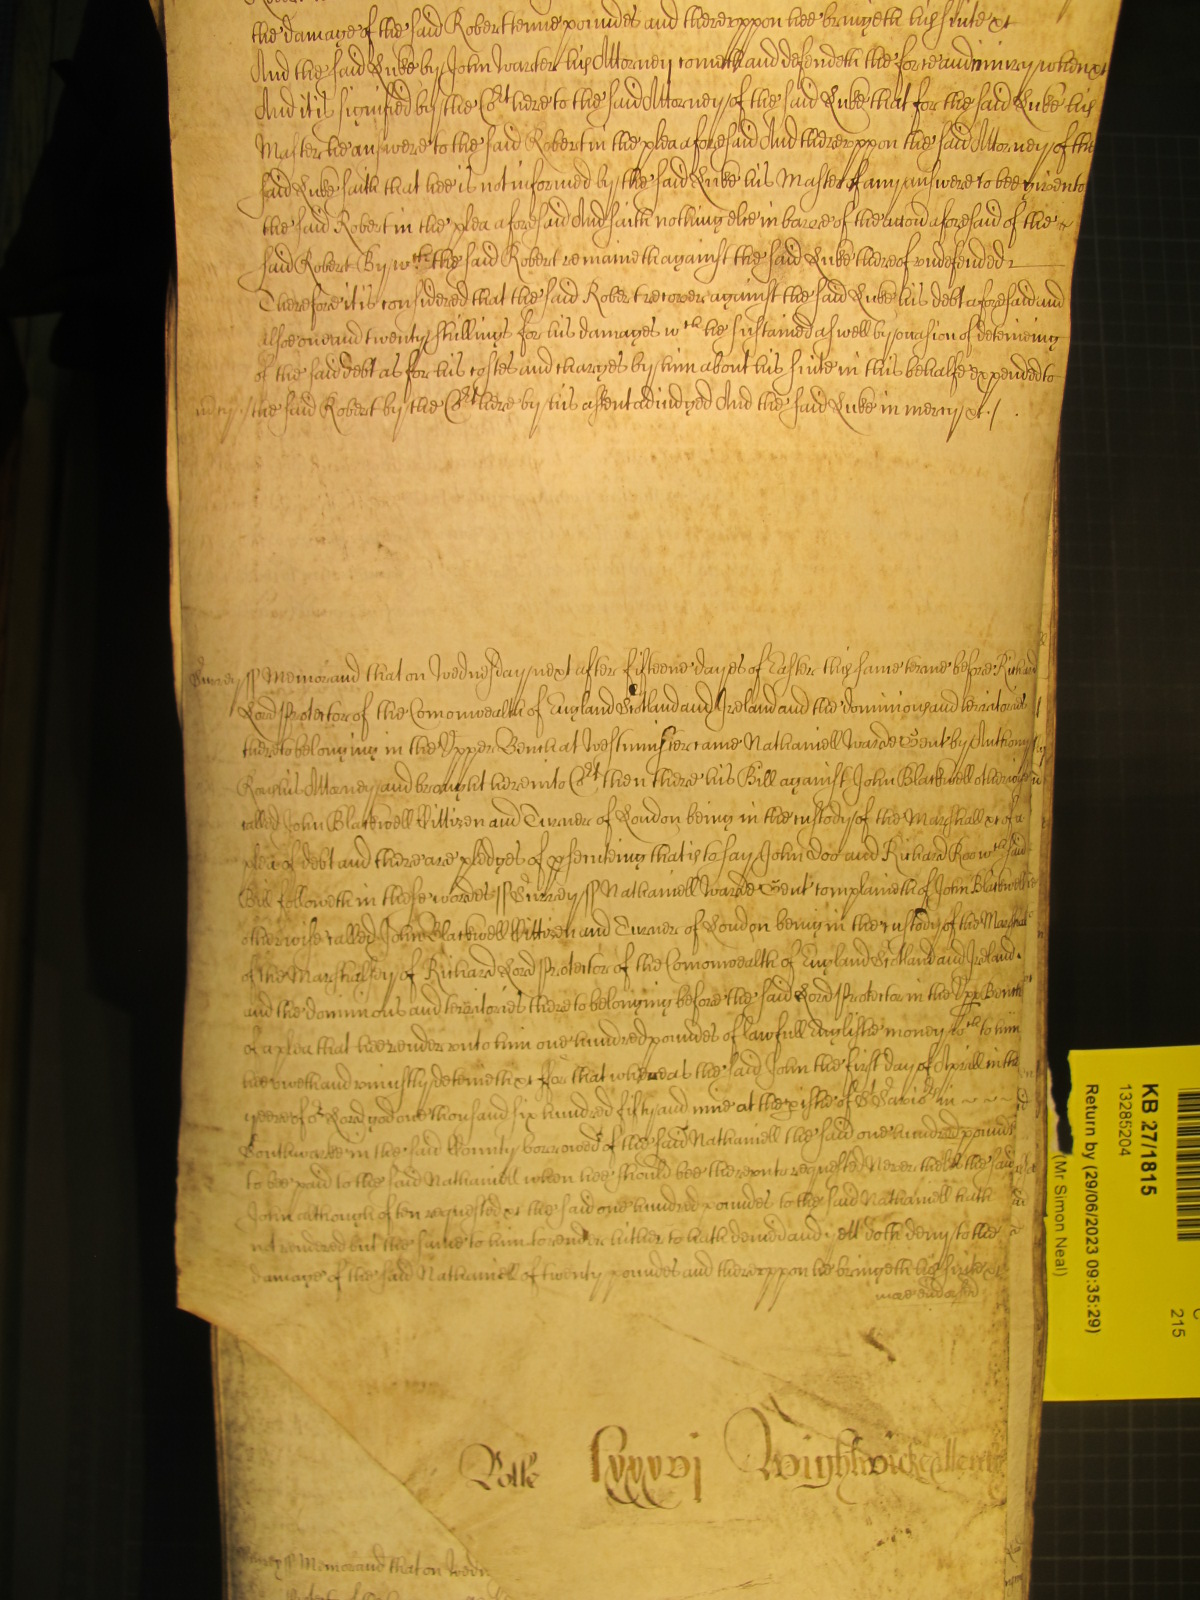 the damage of the said Robert tenne poundes and thereuppon hee bringeth his suite &c
And the said Luke by John Warter his Attorney cometh and defendeth the force and iniury when &c
And it is signified by the Court here to the said Attorney of the said Luke that for the said Luke his
Master he answere to the said Robert in the plea aforesaid And thereuppon the said Attorney of the
said Luke saith that hee is not informed by the said Luke his Master of any answere to bee given to
the said Robert in the plea aforesaid And saith nothing else in barre of the accon aforesaid of the
said Robert By wch the said Robert remaineth against the said Luke thereof undefended
Therefore it is considered that the said Robert recover against the said Luke his debt aforesaid and
alsoe one and twenty shillings for his damages wch he sustained aswell by occasion of deteineing
of the said debt as for his costes and charges by him about his suite in this behalfe expended to
mcy the said Robert by the Court here by his assent adiudged And the said Luke in mercy &c
Surrey ss Memorand that on Wednesday next after fifteene dayes of Easter this same terme before Richard
Lord Protector of the Comonwealth of England Scotland and Ireland and the dominions and territories
thereto belonging in the Upper Bench at Westminster came Nathaniell Warde Gent by Anthony
Roy his Attorney and brought here into Court then there his Bill against John Blackwell otherwise
called John Blackwell Cittizen and Turner of London being in the custody of the Marshall &c of a
plea of debt and there are pledges of psecuteing that is to say John Doo and Richard Roo wch said
Bill followeth in these wordes ss Surrey ss Nathaniell Warde Gent complaineth of John Blackwell
otherwise called John Blackwell Cittizen and Turner of London being in the custody of the Marshal
of the Marshalsey of Richard Lord Protector of the Comonwealth of England Scotland and Ireland
and the dominions and territories thereto belonging before the said Lord Protector in the Upper Bench
of a plea that hee render unto him one hundred poundes of lawfull Englishe money wch to him
hee oweth and uniustly deteineth &c For that whereas the said John the first day of Aprill in the
yeere of or Lord god one thousand six hundred fifty and nine at the pishe of St Saviors in
Southwarke in the said County borrowed of the said Nathaniell the said one hundred pounds
to bee paid to the said Nathaniell when hee should bee thereunto requested Neverthelesse the said
John although often requested &c the said one hundred poundes to the said Nathaniell hath
not rendered but the same to him to render hitherto hath denied and yett doth deny to the
damage of the said Nathaniell of twenty poundes and thereuppon he bringeth his suite &c
more endorsed
Rolle lxxxvj Wightwicke
Surrey ss Memorand that on Wedn
KB 27/1815
13285204
Return by (29/06/2023 09:35:29)
(Mr Simon Neal)
215